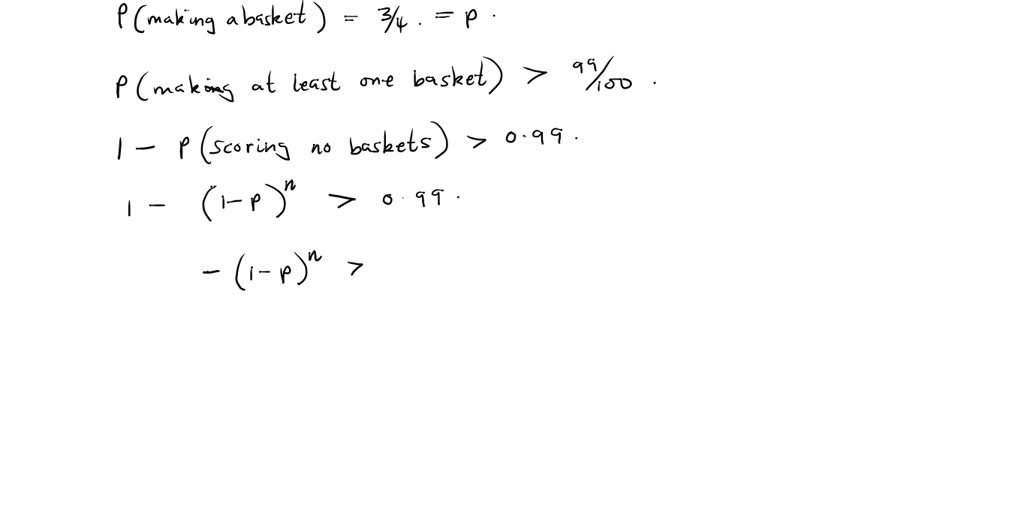 P(making a basket) = 3/4. = p.
P(making at least one basket) > 99/100.
1 - P(scoring no baskets) > 0.99.
1 - (1-p)^n > 0.99.
- (1-p)^n >